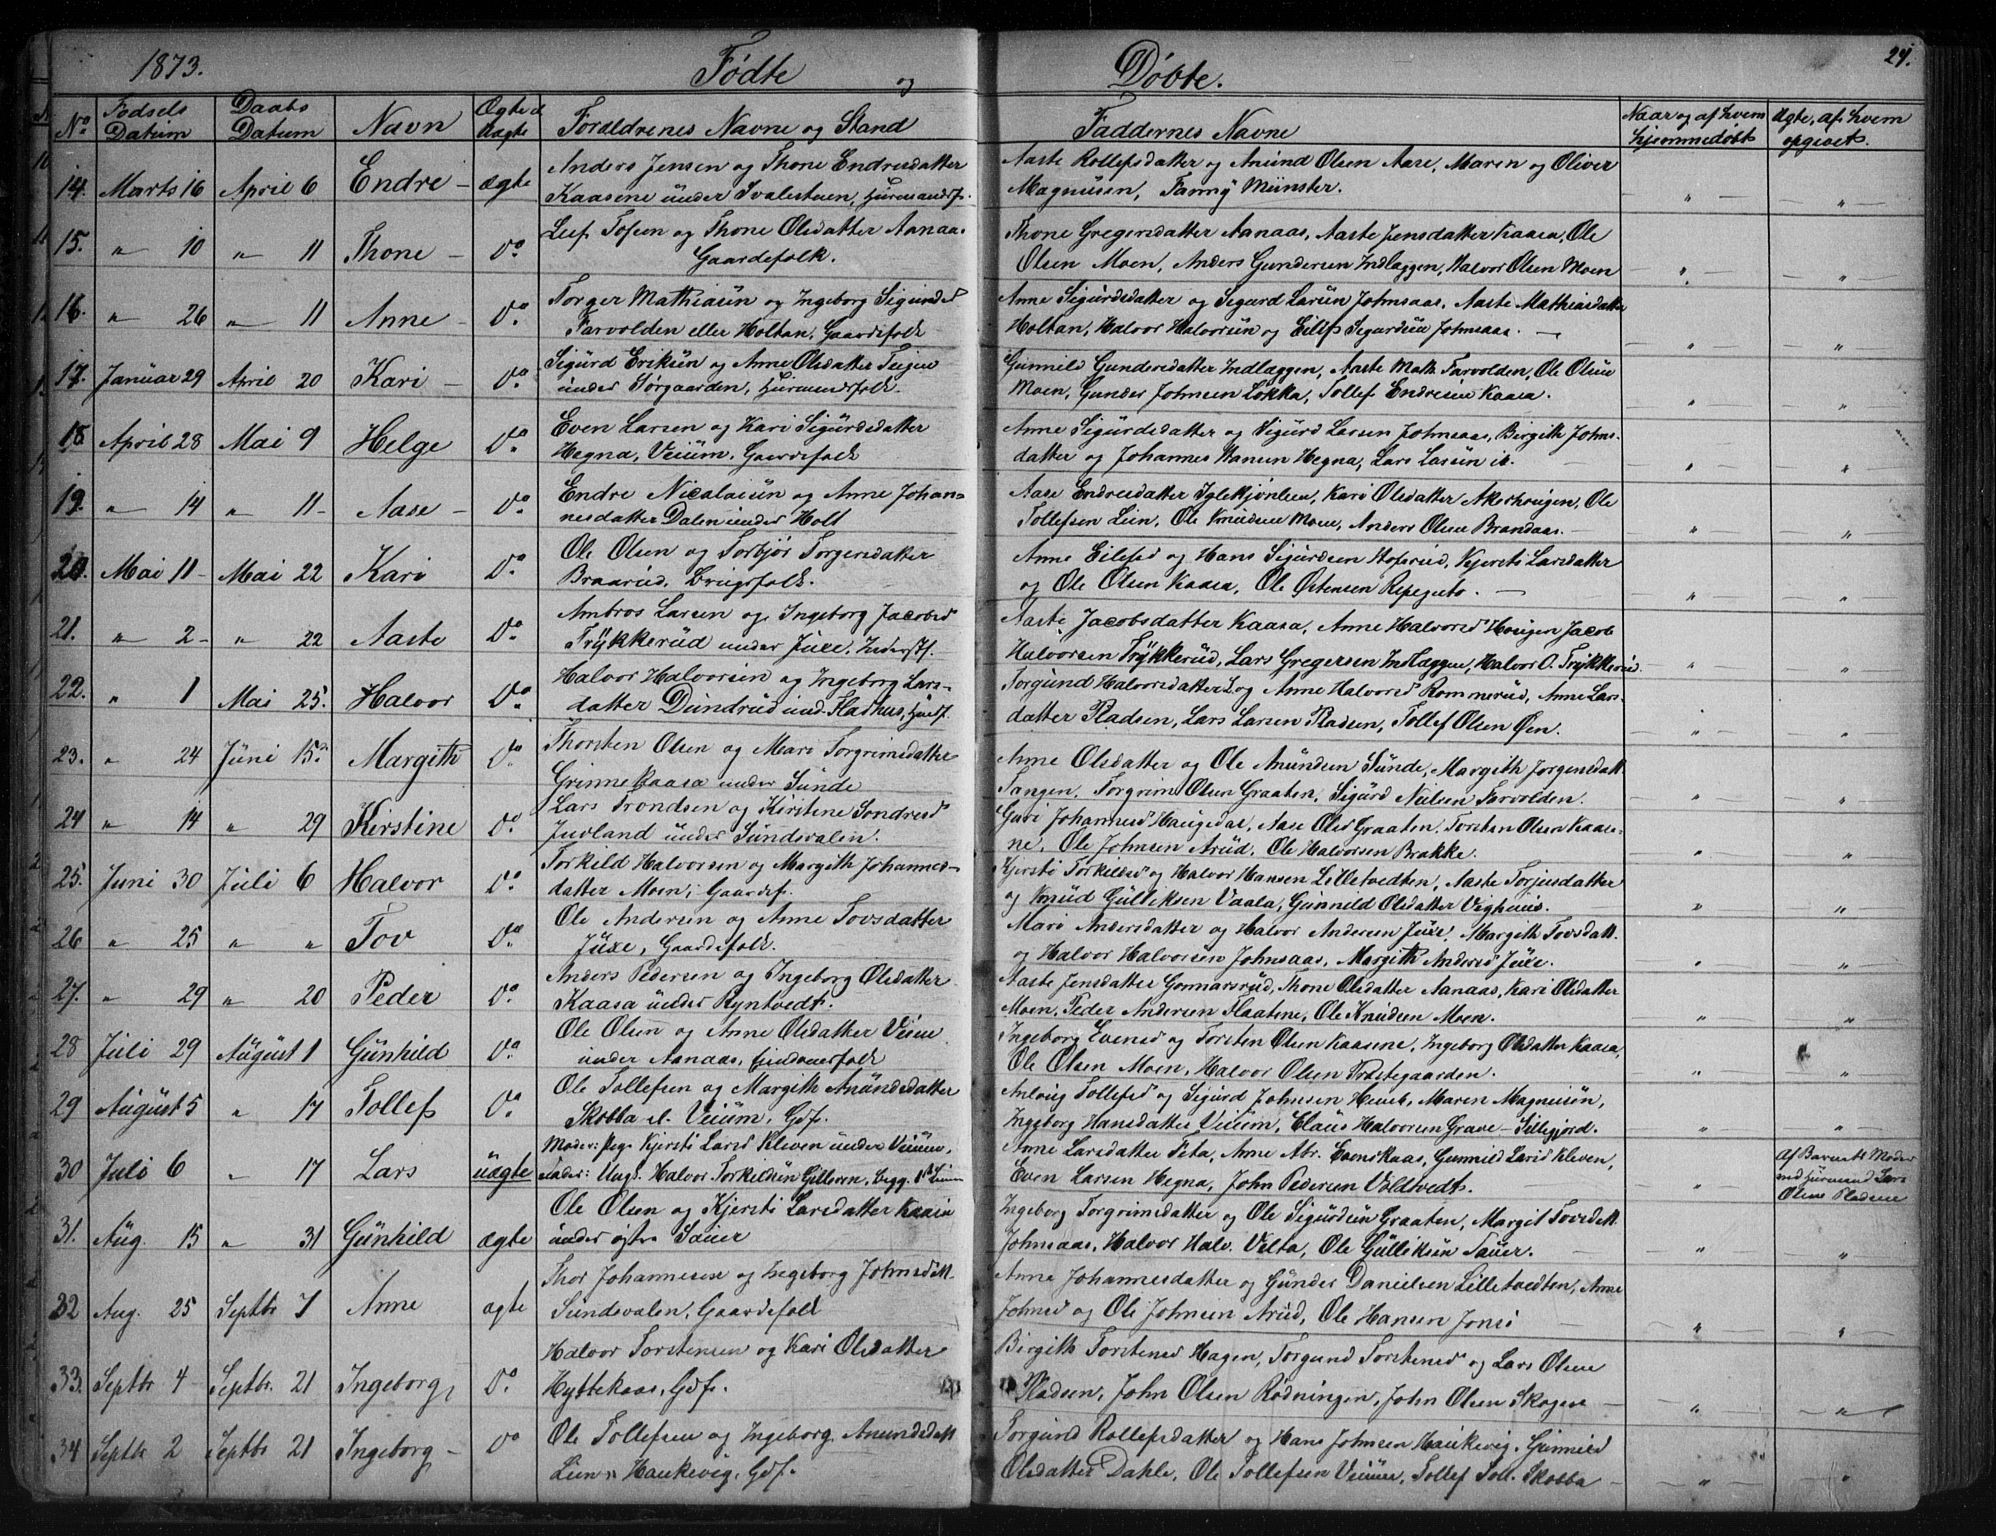 1873. Fødte og Døbte. 24.
No. Fødsels Datum Daabs Datum Navn Ægte el. Uægte Forældrenes Navne og Stand Faddernes Navne Naar og af hvem hjemmedøbt Uægte, af hvem opgivet.
14. Marts 16 April 6 Endre – ægte Anders Jensen og Thone Endresdatter Aaste Rollefsdatter og Anund Olsen Aase, Maren og Oliver
Kaasene under Svalestuen, Huusmandsf. Magnusen, Fanny Münster. " "
15. " 10 " 11 Thone – Do. Leif Tofsen og Thone Olsdatter Aanaas Thone Gregersdatter Aanaas, Aaste Jensdatter Kaasa, Ole
Gaardefolk. Olsen Moen, Anders Gundersen Indlæggen, Halvor Olsen Moen " "
16. " 26 " 11 Anne – Do. Torger Mathiasen og Ingeborg Sigurdsd Anne Sigurdsdatter og Sigurd Larsen Johnsaas, Aaste Mathiasdatter
Farvolden eller Holtan, Gaardefolk Holtan, Halvor Halvorsen og Eilef Sigurdsen Johnsaas. — " "
17. Januar 29 April 20 Kari – Do. Sigurd Eriksen og Anne Olsdatter Teigen Gunnild Gundersdatter Indlæggen, Aaste Math. Farvolden, Ole Olsen
under Sørgaarden, Huusmandsfolk. Moen, Gunder Johnsen Løkka, Tollef Endresen Kaasa. " "
18. April 28 Mai 9 Helge Do. Even Larsen og Kari Sigurdsdatter Anne Sigurdsdatter og Sigurd Larsen Johnsaas, Birgith Johns-
Hegna, Veium, Gaardefolk datter og Johannes Hansen Hegna, Lars Larsen ib. " "
19. " 14 " 11 – Aase – Do. Endre Nicolaisen og Anne Johan- Aase Endresdatter Iglekjønlien, Kari Olsdatter Akerhougen, Ole
nesdatter Dalen under Holt Tollefsen Lien, Ole Knudsen Moen, Anders Olsen Brandaas. — " "
20. Mai 11 – Mai 22 Kari Do. Ole Olsen og Torbjør Torgersdatter Anne Eilefsd og Hans Sigurdsen Hofsrud, Kjersti Larsdatter
Braarud, Brugsfolk. og Ole Olsen Kaasa, Ole Østensen — " "
21. " 2 – " 22 Aaste Do. Ambros Larsen og Ingeborg Jacobsd Aaste Jacobsdatter Kaasa, Anne Halvorsd Hougen Jacob
Trykkerud under Juxe, Inderstf. Halvorsen Trykkerud, Lars Gregersen Indlæggen, Halvor O. Trykkerud " "
22. " 1 Mai 25. Halvor Do. Halvor Halvorsen og Ingeborg Lars- Torgund Halvorsdatter og Anne Halvorsd Rommerud, Anne Lars-
datter Dundrud und. Fladhus, Huusf. datter Pladsen, Lars Larsen Pladsen, Tollef Olsen Øen. " "
23. " 24 Juni 15. Margith Do. Thorsten Olsen og Mari Torgrimsdatter Anne Olsdatter og Ole Anundsen Sunde, Margith Jorgensdatt.
Grinnekaasa under Sunde Tangen, Torgrim Olsen Graaten, Sigurd Nielsen Farvolden. " "
24 " 14 " 29 Kerstine Do. Lars Trondsen og Kirstene Sondresd Guri Johannesd Haugedal, Aase Olsd Graaten, Torsten Olsen Kaase-
Juvland under Sundsvalen. ne, Ole Johnsen Arud, Ole Halvorsen Brakke. " "
25. Juni 30 Juli 6 Halvor Do. Torkild Halvorsen og Margith Johannes- Kjersti Torkildsd og Halvor Hansen Lilletvedten, Aaste Torjusdatter
datter Moen, Gaardef. og Knud Gulliksen Vaala, Gunnild Olsdatter Vighuus. " "
26 " 25 " " Tov Do. Ole Andersen og Anne Tovsdatter Mari Andersdatter og Halvor Andersen Juxe, Margith Tovsdatt.
Juxe, Gaardefolk. og Halvor Halvorsen Johnsaas, Margith Andersd Juxe. " "
27. " 29 " 20 Peder Do. Anders Pedersen og Ingeborg Olsdatter Aaste Jensdatter Gonnarsrud, Thone Olsdatter Aanaas, Kari Olsdatter
Kaasa under Ryntvedt. Moen, Peder Andersen Flaatene, Ole Knudsen Moen. " "
28 Juli 29 August 1 Gunhild Do. Ole Olsen og Anne Olsdatter Veium Ingeborg Evensd og Torsten Olsen Kaasene, Ingeborg Olsdatter Kaasa,
under Aanaas, Huusmandsfolk Ole Olsen Moen, Halvor Olsen Præstegaarden. " "
29 August 5 " 17 Tollef Do. Ole Tollefsen og Margith Anundsdatter Anlaug Tollefsd og Sigurd Johnsen Heuk, Maren Magnusen,
Skobba el. Veium, Gdf. Ingeborg Hansdatter Veium, Claus Halvorsen Grave – Sillegjord. " "
30 Juli 6 " 17 Lars uægte Moder: Pige Kjersti Larsd Kleven under Veium, Anne Larsdatter Teta, Anne Abr. Evenskaas, Gunnild Larsd Kleven, Af Barnets Moder
Fader: Ung. Halvor Torkildsen Even Larsen Hegna, John Pedersen Voldtvedt. " med Huusmand Lars
Olsen Pladsen
31. Aug. 15 " 31 Gunhild ægte Ole Olsen og Kjersti Larsdatter Kaasa Ingeborg Torgrimsdatter og Ole Sigurdsen Graaten, Margit Tovsdtt.
under østre Sauer Johnsaas, Halvor Halv. Velta, Ole Gulliksen Sauer. " "
32 Aug. 25 Septbr 7 Anne ægte Thor Johannesen og Ingeborg Johnsdtt. Anne Johannesdatter og Gunder Danielsen Lilletvedten, Anne
Sundsvalen, Gaardefolk Johnsd og Ole Johnsen Arud, Ole Hansen Jonsi " "
33. Septbr 4 Septbr. 21 Ingeborg, Do. Halvor Torstensen og Kari Olsdatter Birgith Torstensd Hagen, Torgund Torstensd og Lars Olsen
Hyttekaas, Gdf. Pladsen, John Olsen Rødningen, John Olsen Skogen " "
34 Septbr 2 Septbr 21 Ingeborg – Do Ole Tollefsen og Ingeborg Anundsdatt. Torgund Rollefsdatter og Hans Johnsen Haukevig, Gunnild
Lien i Haukevig, Gdf. Olsdatter Dahle, Ole Tollefsen Veium, Tollef Toll. Skobba " "